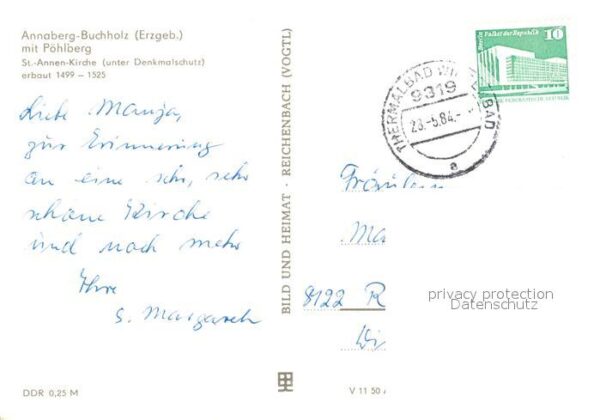 Annaberg-Buchholz (Erzgeb.)
mit Pöhlberg
St.-Annen-Kirche (unter Denkmalschutz)
erbaut 1499 – 1525
Liebe Manja,
zur Erinnerung
an eine sehr, sehr
schöne Kirche
und noch mehr
Ihre
S. Margareth
DDR 0,25 M
BILD UND HEIMAT · REICHENBACH (VOGTL)
Berlin Palast der Republik
10
DEUTSCHE DEMOKRATISCHE REPUBLIK
THERMALBAD WI BAD
9319
23.-5.84.-
a
Fräulein
Ma
8122 R
Wi
privacy protection
Datenschutz
V 11 50 A